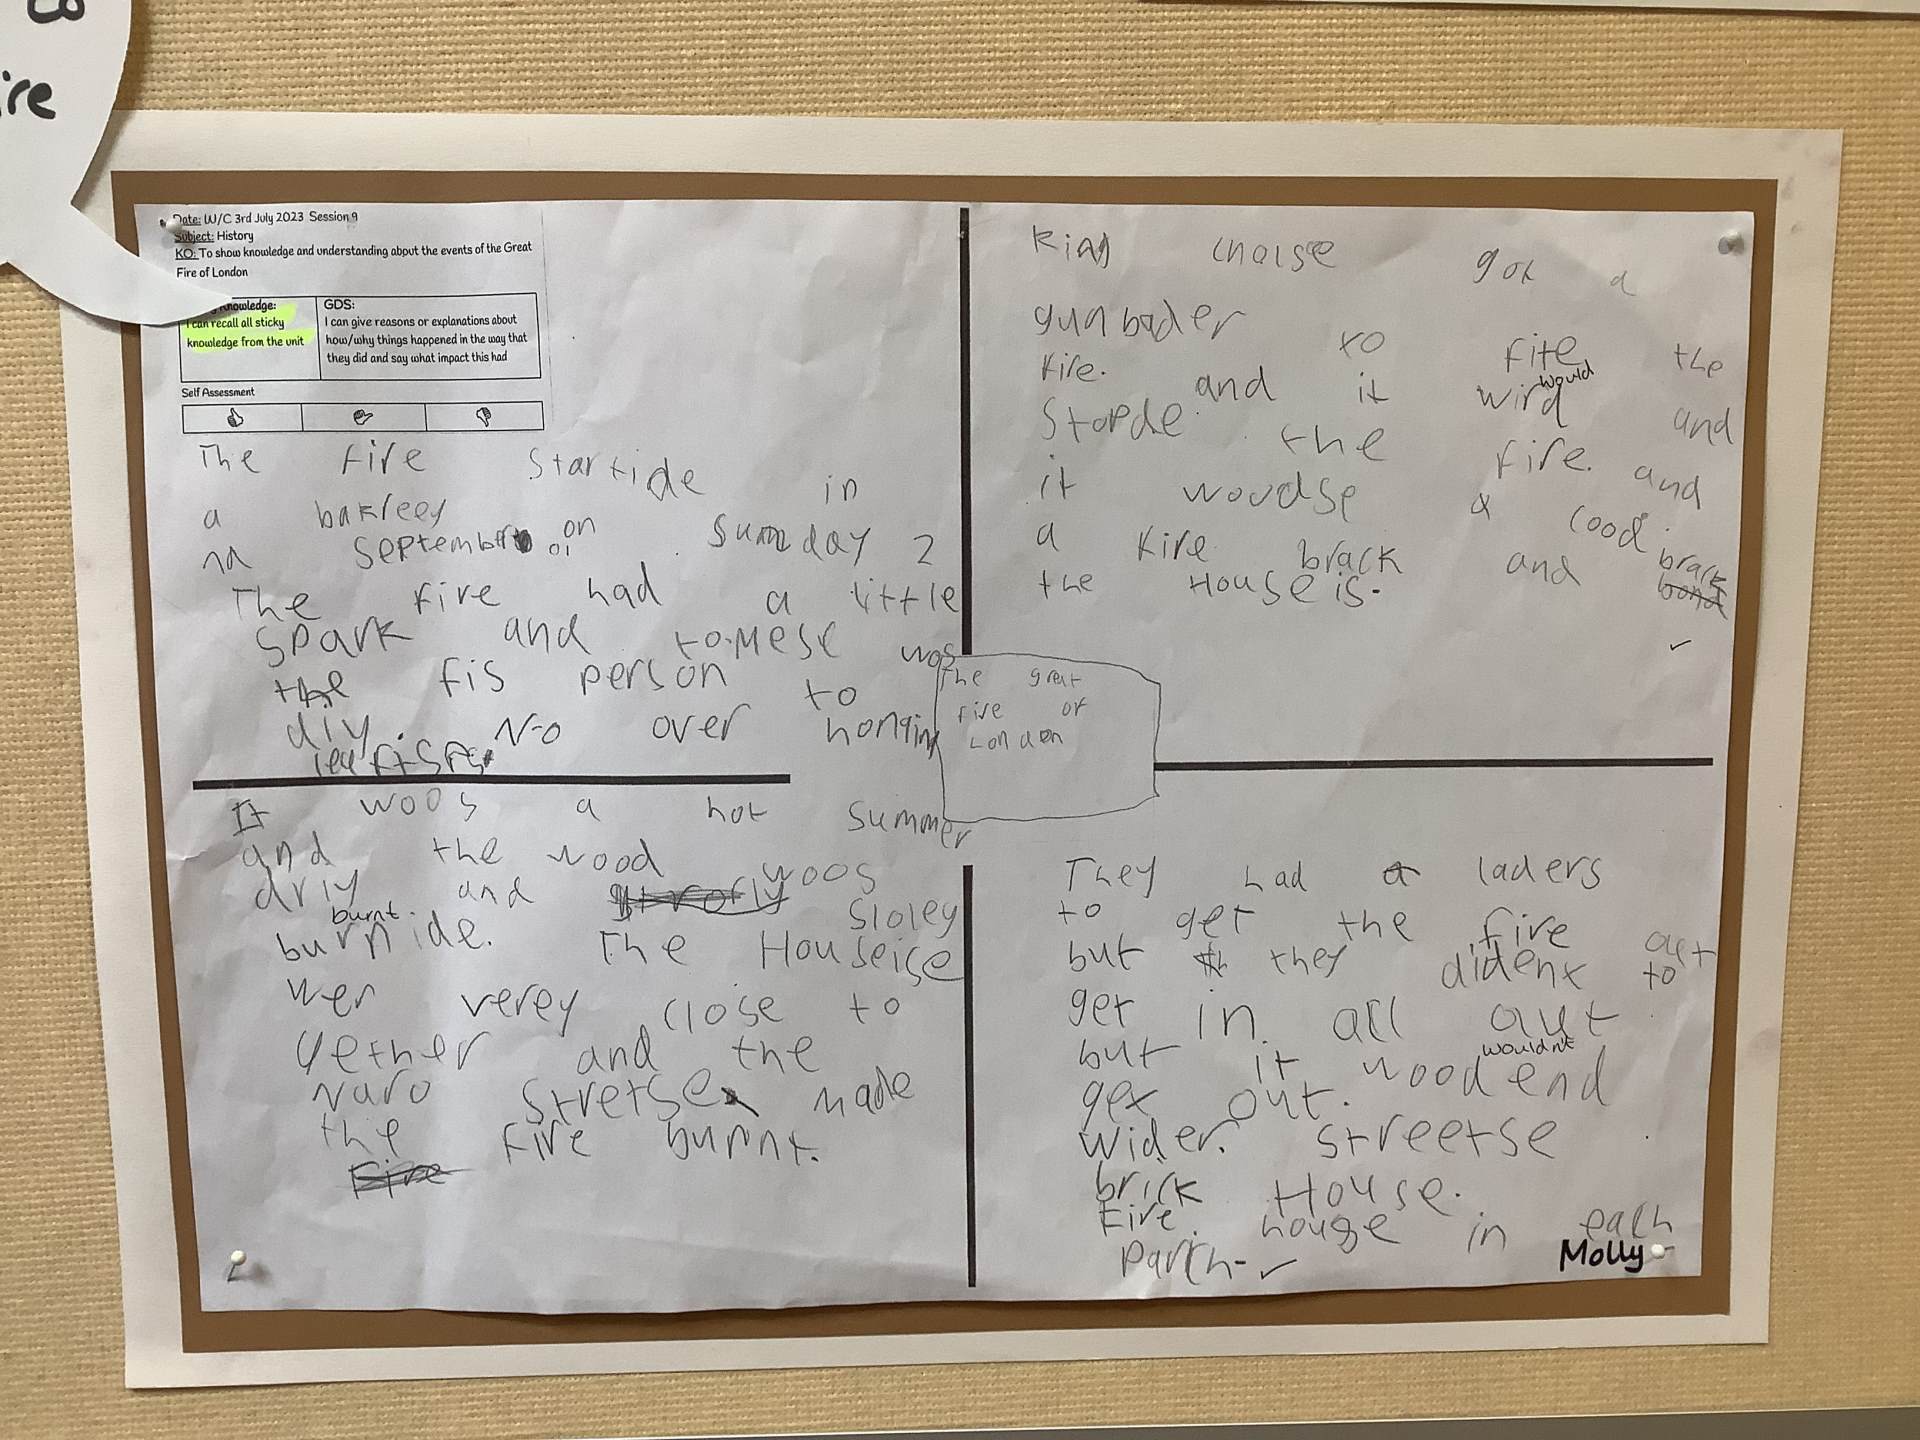 ire
Date: W/C 3rd July 2023 Session 9
Subject: History
KO: To show knowledge and understanding about the events of the Great
Fire of London
knowledge:
I can recall all sticky
knowledge from the unit
GDS:
I can give reasons or explanations about
how/why things happened in the way that
they did and say what impact this had
Self Assessment
The fire startide in
a bakreey
nd September on Sunday 2
The fire had a little
spark and tomese was
the fis person to
diy. No over honging
It woos a hot summer
and the wood woos
driy and sloley
burnt
burnide. The Houseise
wer verey close to
gether and the
naro stretse made
the fire burnt.
Fire
The great
fire of
London
King cholse got a
gunbader to fite the
fire. and it wird would and
Storde the fire. and
it woudse a cood.
a fire brack and brack
the Houseis.
They had a laders
to get the fire out
but th they dident to
get in all out
but it woodend wouldn't
get out.
wider. streetse
brick House.
Fire house in each
parch-
Molly